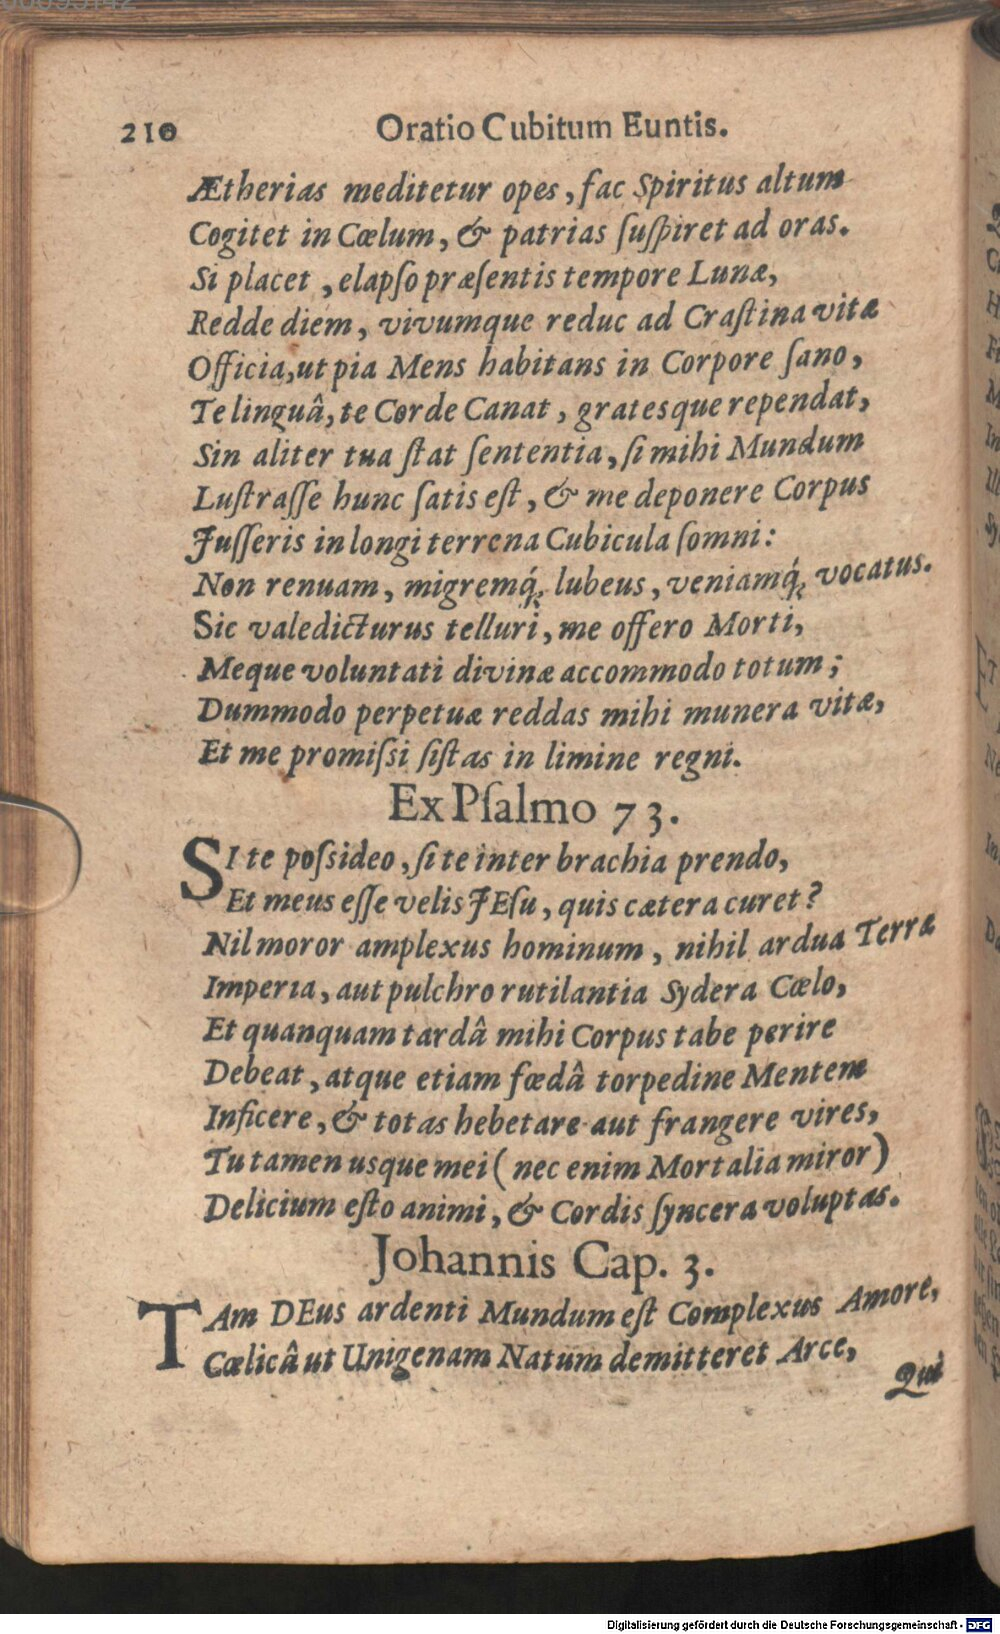 210 Oratio Cubitum Euntis.
Ætherias meditetur opes, fac Spiritus altum
Cogitet in Cœlum, & patrias ſuſpiret ad oras.
Si placet, elapſo præſentis tempore Lunæ,
Redde diem, vivumque reduc ad Craſtina vitæ
Officia, ut pia Mens habitans in Corpore ſano,
Te linguâ, te Corde Canat, gratesque rependat,
Sin aliter tua ſtat ſententia, ſi mihi Mundum
Luſtraſſe hunc ſatis eſt, & me deponere Corpus
Juſſeris in longi terrena Cubicula ſomni:
Non renuam, migremq́; lubeus, veniamq́; vocatus.
Sic valedicturus telluri, me offero Morti,
Meque voluntati divinæ accommodo totum;
Dummodo perpetuæ reddas mihi munera vitæ,
Et me promiſsi ſiſtas in limine regni.
Ex Pſalmo 73.
SI te poſsideo, ſi te inter brachia prendo,
Et meus eſſe velis JEſu, quis cætera curet?
Nil moror amplexus hominum, nihil ardua Terræ
Imperia, aut pulchro rutilantia Sydera Cœlo,
Et quanquam tardâ mihi Corpus tabe perire
Debeat, atque etiam fœdâ torpedine Mentem
Inficere, & totas hebetare aut frangere vires,
Tu tamen usque mei (nec enim Mortalia miror)
Delicium eſto animi, & Cordis ſyncera voluptas.
Johannis Cap. 3.
TAm DEus ardenti Mundum eſt Complexus Amore,
Cœlicâ ut Unigenam Natum demitteret Arce,
Qui
Digitalisierung gefördert durch die Deutsche Forschungsgemeinschaft - DFG